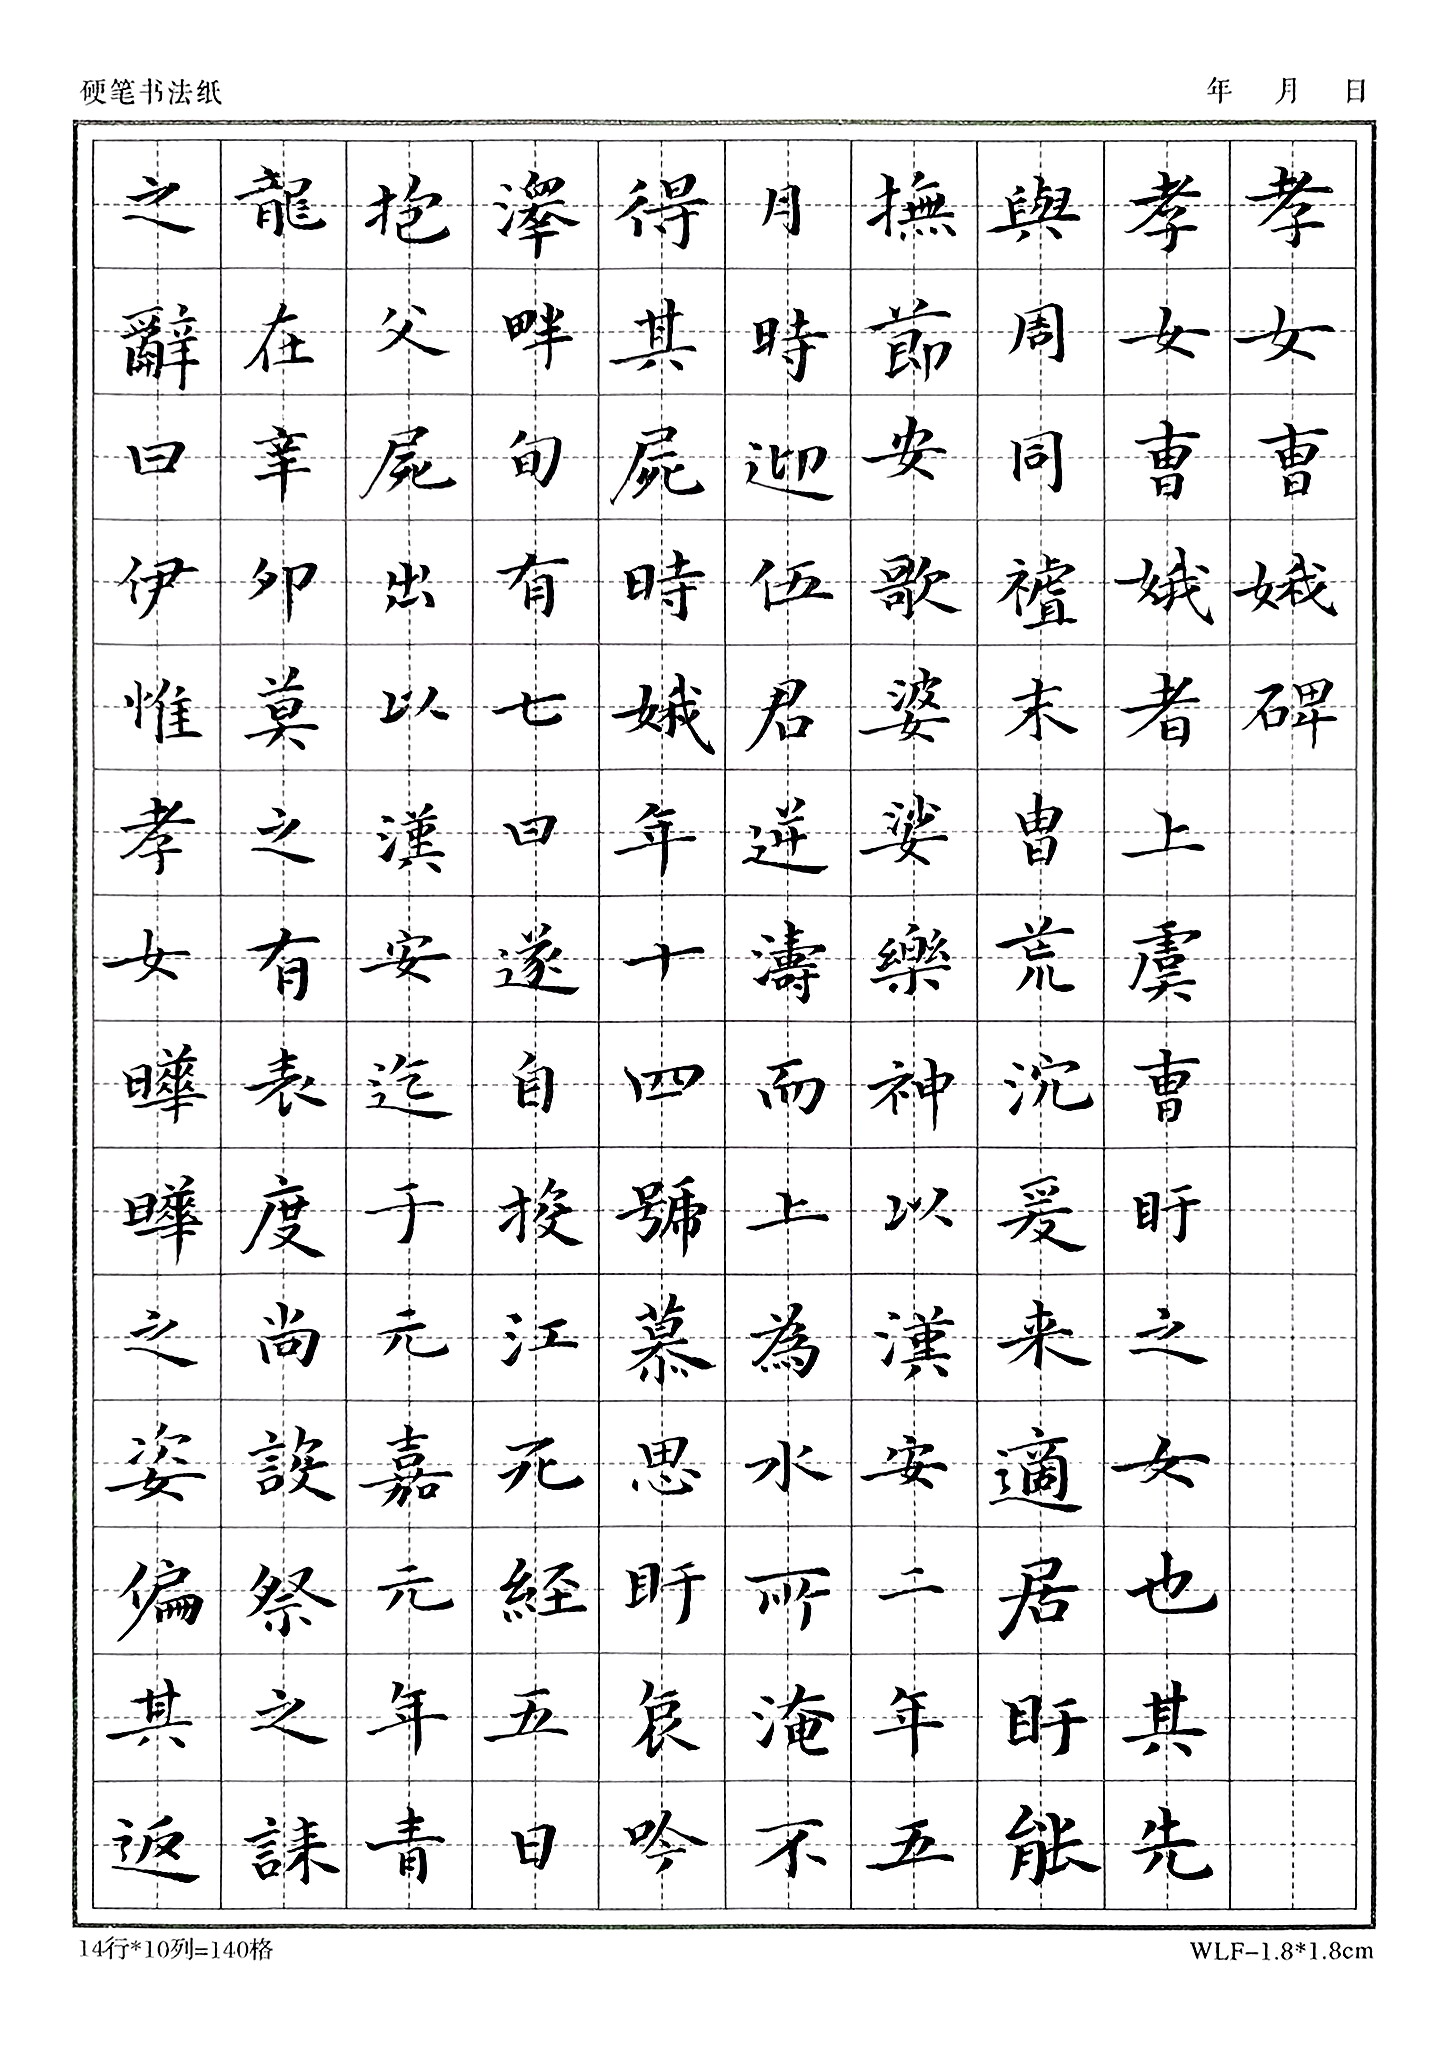 硬笔书法纸
年 月 日
孝女曺娥碑
孝女曺娥者上虞曺盱之女也其先
與周同禇末胄荒沉爰来適居盱能
撫節安歌婆娑樂神以漢安二年五
月時迎伍君逆濤而上為水所淹不
得其屍時娥年十四號慕思盱哀吟
澤畔旬有七日遂自投江死経五日
抱父屍出以漢安迄于元嘉元年青
龍在辛卯莫之有表度尚設祭之誄
之辭曰伊惟孝女曄曄之姿偏其返
14行*10列=140格
WLF-1.8*1.8cm